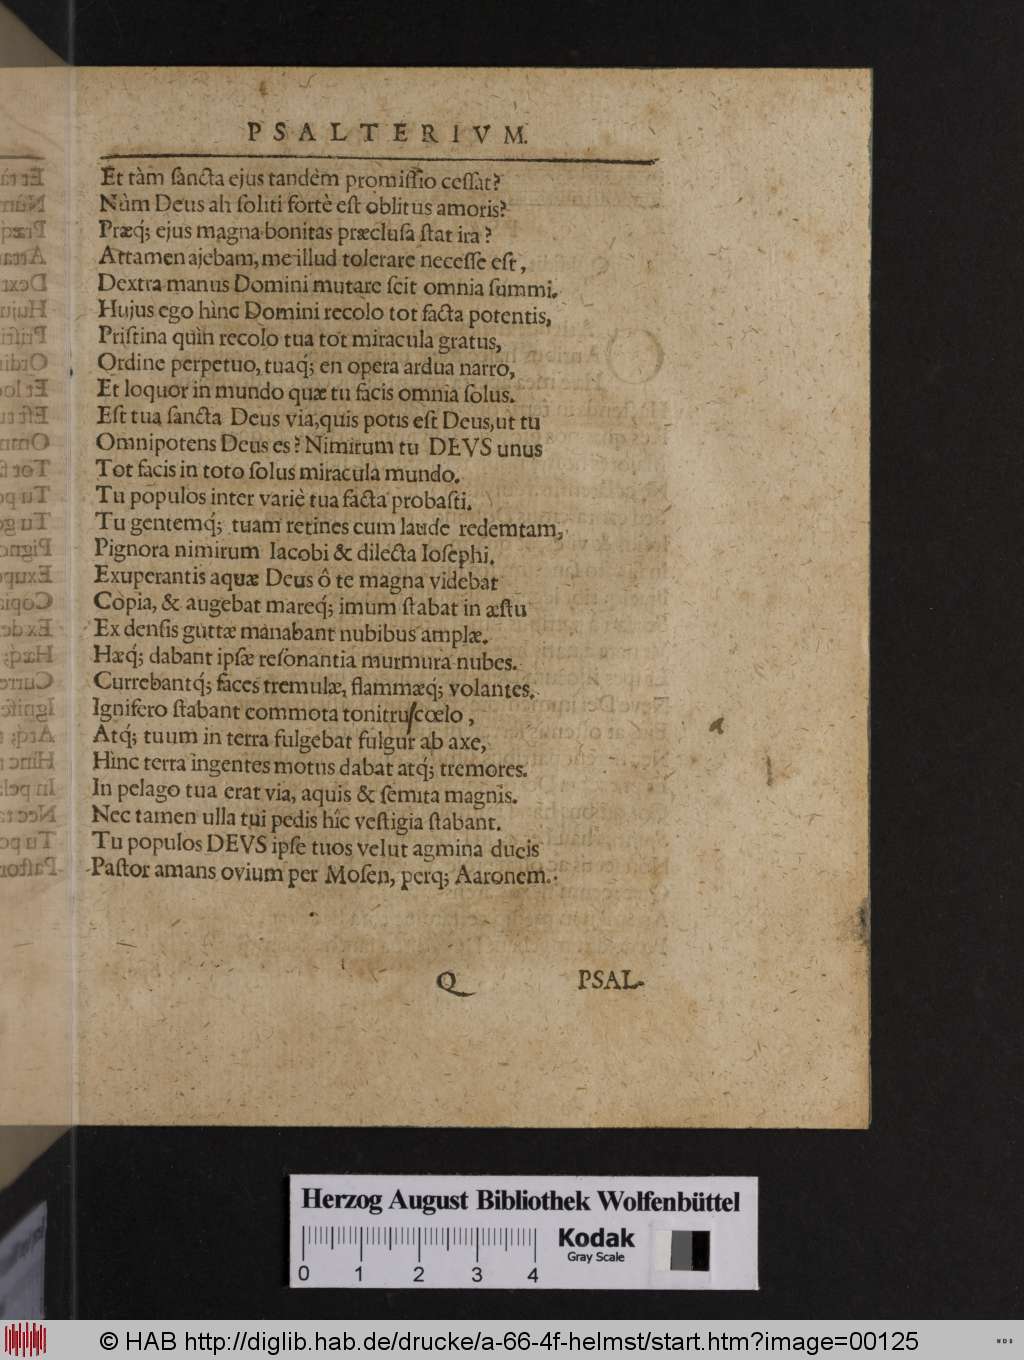 PSALTERIVM.
Et tàm ſancta ejus tandèm promiſſio ceſſat?
Nùm Deus ah ſoliti fortè eſt oblitus amoris?
Præq́; ejus magna bonitas præcluſa ſtat ira?
Attamen ajebam, me illud tolerare neceſſe eſt,
Dextra manus Domini mutare ſcit omnia ſummi.
Hujus ego hìnc Domini recolo tot facta potentis,
Priſtina quìn recolo tua tot miracula gratus,
Ordine perpetuo, tuaq́; en opera ardua narro,
Et loquor in mundo quæ tu facis omnia ſolus.
Eſt tua ſancta Deus via, quis potis eſt Deus, ut tu
Omnipotens Deus es? Nimirum tu DEVS unus
Tot facis in toto ſolus miracula mundo.
Tu populos inter variè tua facta probaſti.
Tu gentemq́; tuam retines cum laude redemtam,
Pignora nimirum Iacobi & dilecta Ioſephi.
Exuperantis aquæ Deus ô te magna videbat
Copia, & augebat mareq́; imum ſtabat in æſtu
Ex denſis guttæ manabant nubibus amplæ.
Hæq́; dabant ipſæ reſonantia murmura nubes.
Currebantq́; faces tremulæ, flammæq́; volantes,
Ignifero ſtabant commota tonitru cœlo,
Atq́; tuum in terra fulgebat fulgur ab axe,
Hìnc terra ingentes motus dabat atq́; tremores.
In pelago tua erat via, aquis & ſemita magnis.
Nec tamen ulla tui pedis hîc veſtigia ſtabant.
Tu populos DEVS ipſe tuos velut agmina ducis
Paſtor amans ovium per Moſen, perq; Aaronem.
Q PSAL-
Herzog August Bibliothek Wolfenbüttel
Kodak
Gray Scale
0 1 2 3 4
© HAB http://diglib.hab.de/drucke/a-66-4f-helmst/start.htm?image=00125